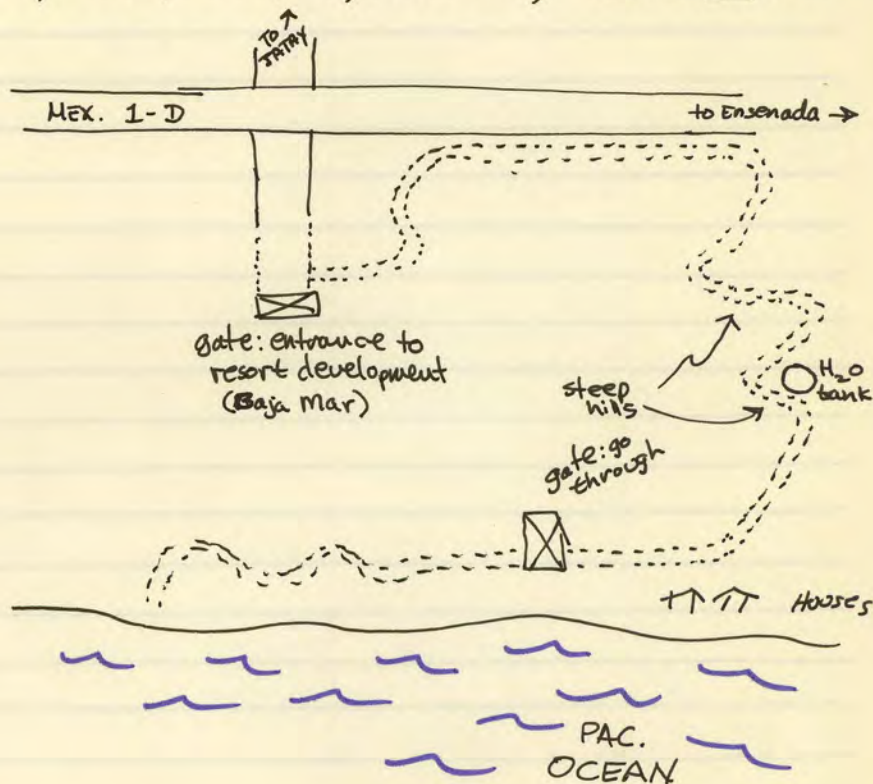 TO
JATAY
MEX. 1-D
to Ensenada →
gate: entrance to
resort development
(Baja Mar)
steep
hills
H₂O
tank
gate: go
through
Houses
PAC.
OCEAN